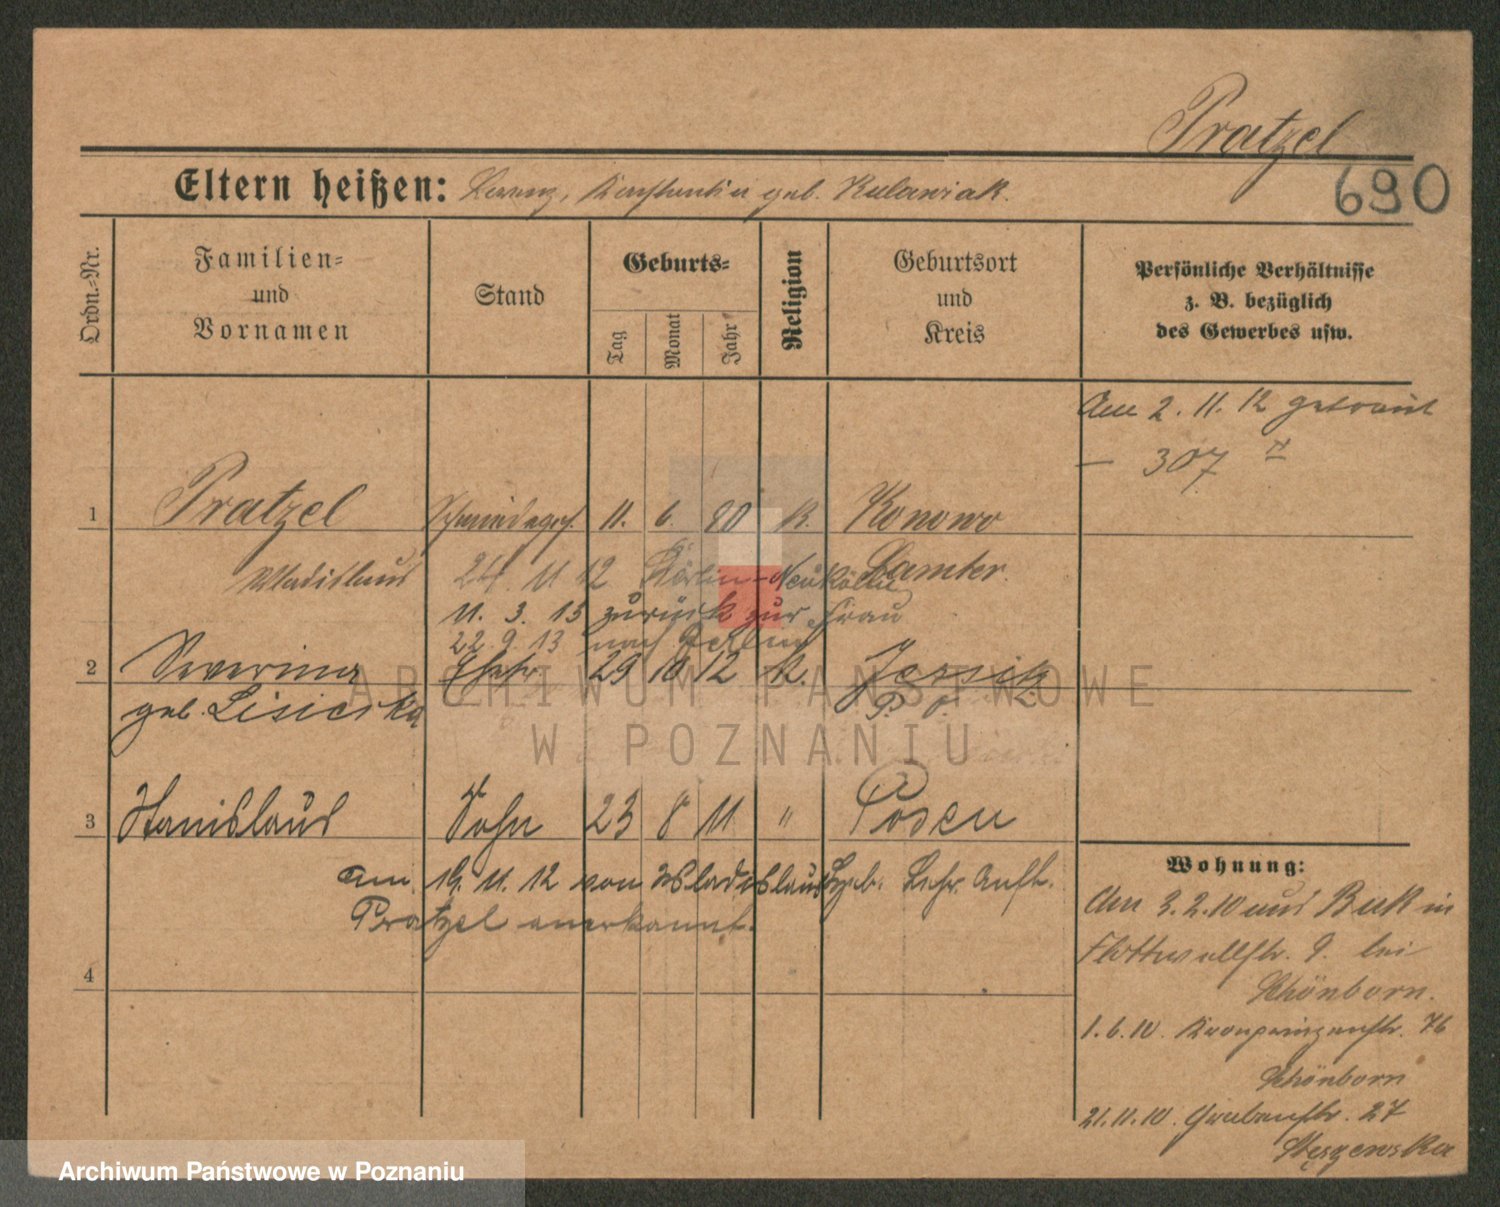 Pratzel
690
Eltern heißen: Lorenz, Konstantia geb. Kulawiak.
Ordn.-Nr.
Familien-
und
Vornamen
Stand
Geburts-
Tag
Monat
Jahr
Religion
Geburtsort
und
Kreis
Persönliche Verhältnisse
z. B. bezüglich
des Gewerbes usw.
Am 2. 11. 12 getraut
– 307
1 Pratzel Schmiedeges. 11. 6. 80 K. Konowo
Wladislaus Samter.
24. 11 12 Neukölln
11. 3. 13 zurück zur Frau
22. 9. 13 nach Berlin
2 Severina Ehefr. 29 10 12 K.
geb. Lisiecka P. O.
3 Stanislaus Sohn 23 8 11 " Posen
am 19. 11. 12 von Wladislaus
Pratzel anerkannt.
4
Wohnung:
Am 3. 2. 10 aus Buk in
Flottwellstr. 9. bei
Schönborn.
1. 6. 10. Kronprinzenstr. 76
Schönborn
21. 11. 10. Grabenstr. 27
Stęszewska
ARCHIWUM PAŃSTWOWE
W POZNANIU
Archiwum Państwowe w Poznaniu